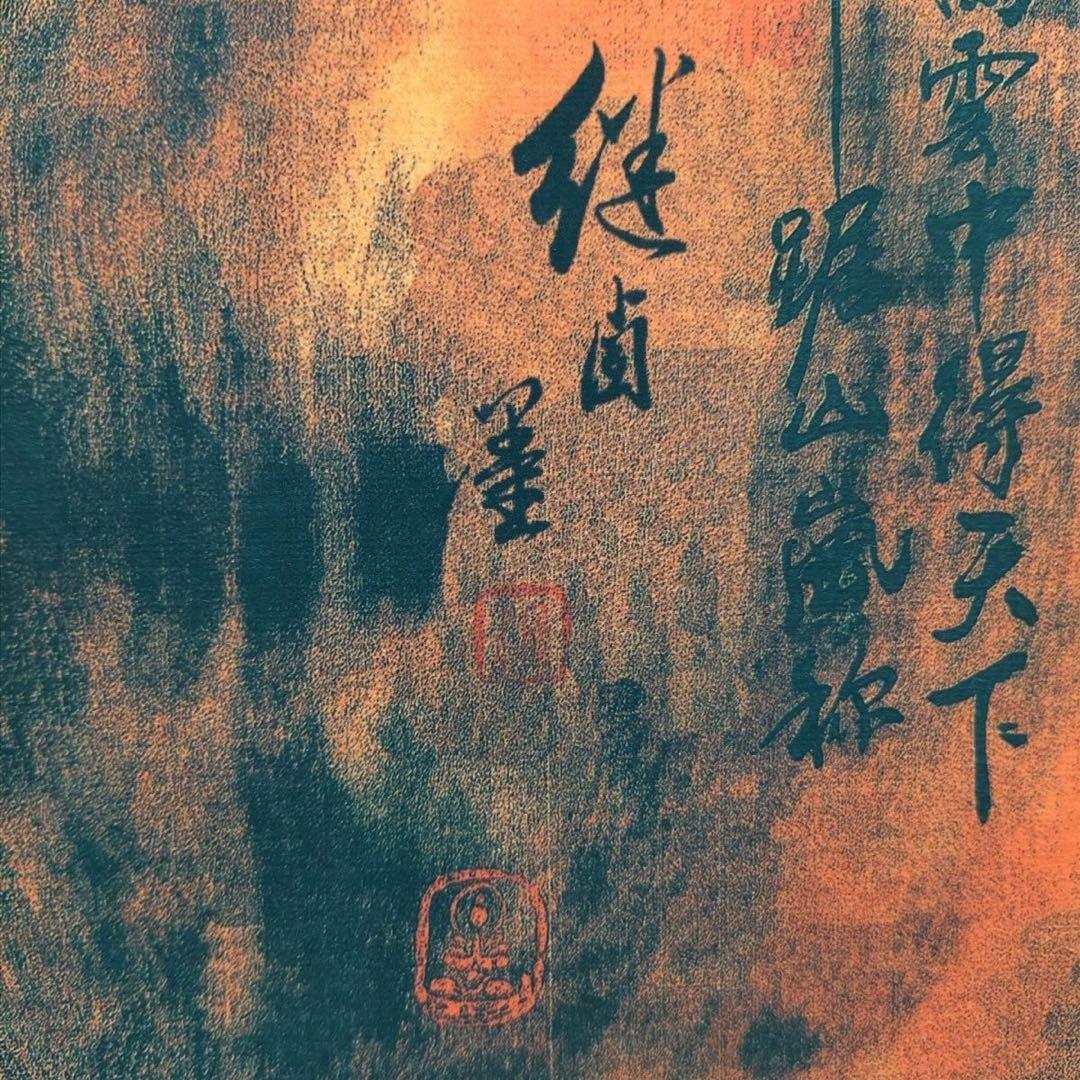 雲中得天下
踞山嵐称
继卣墨